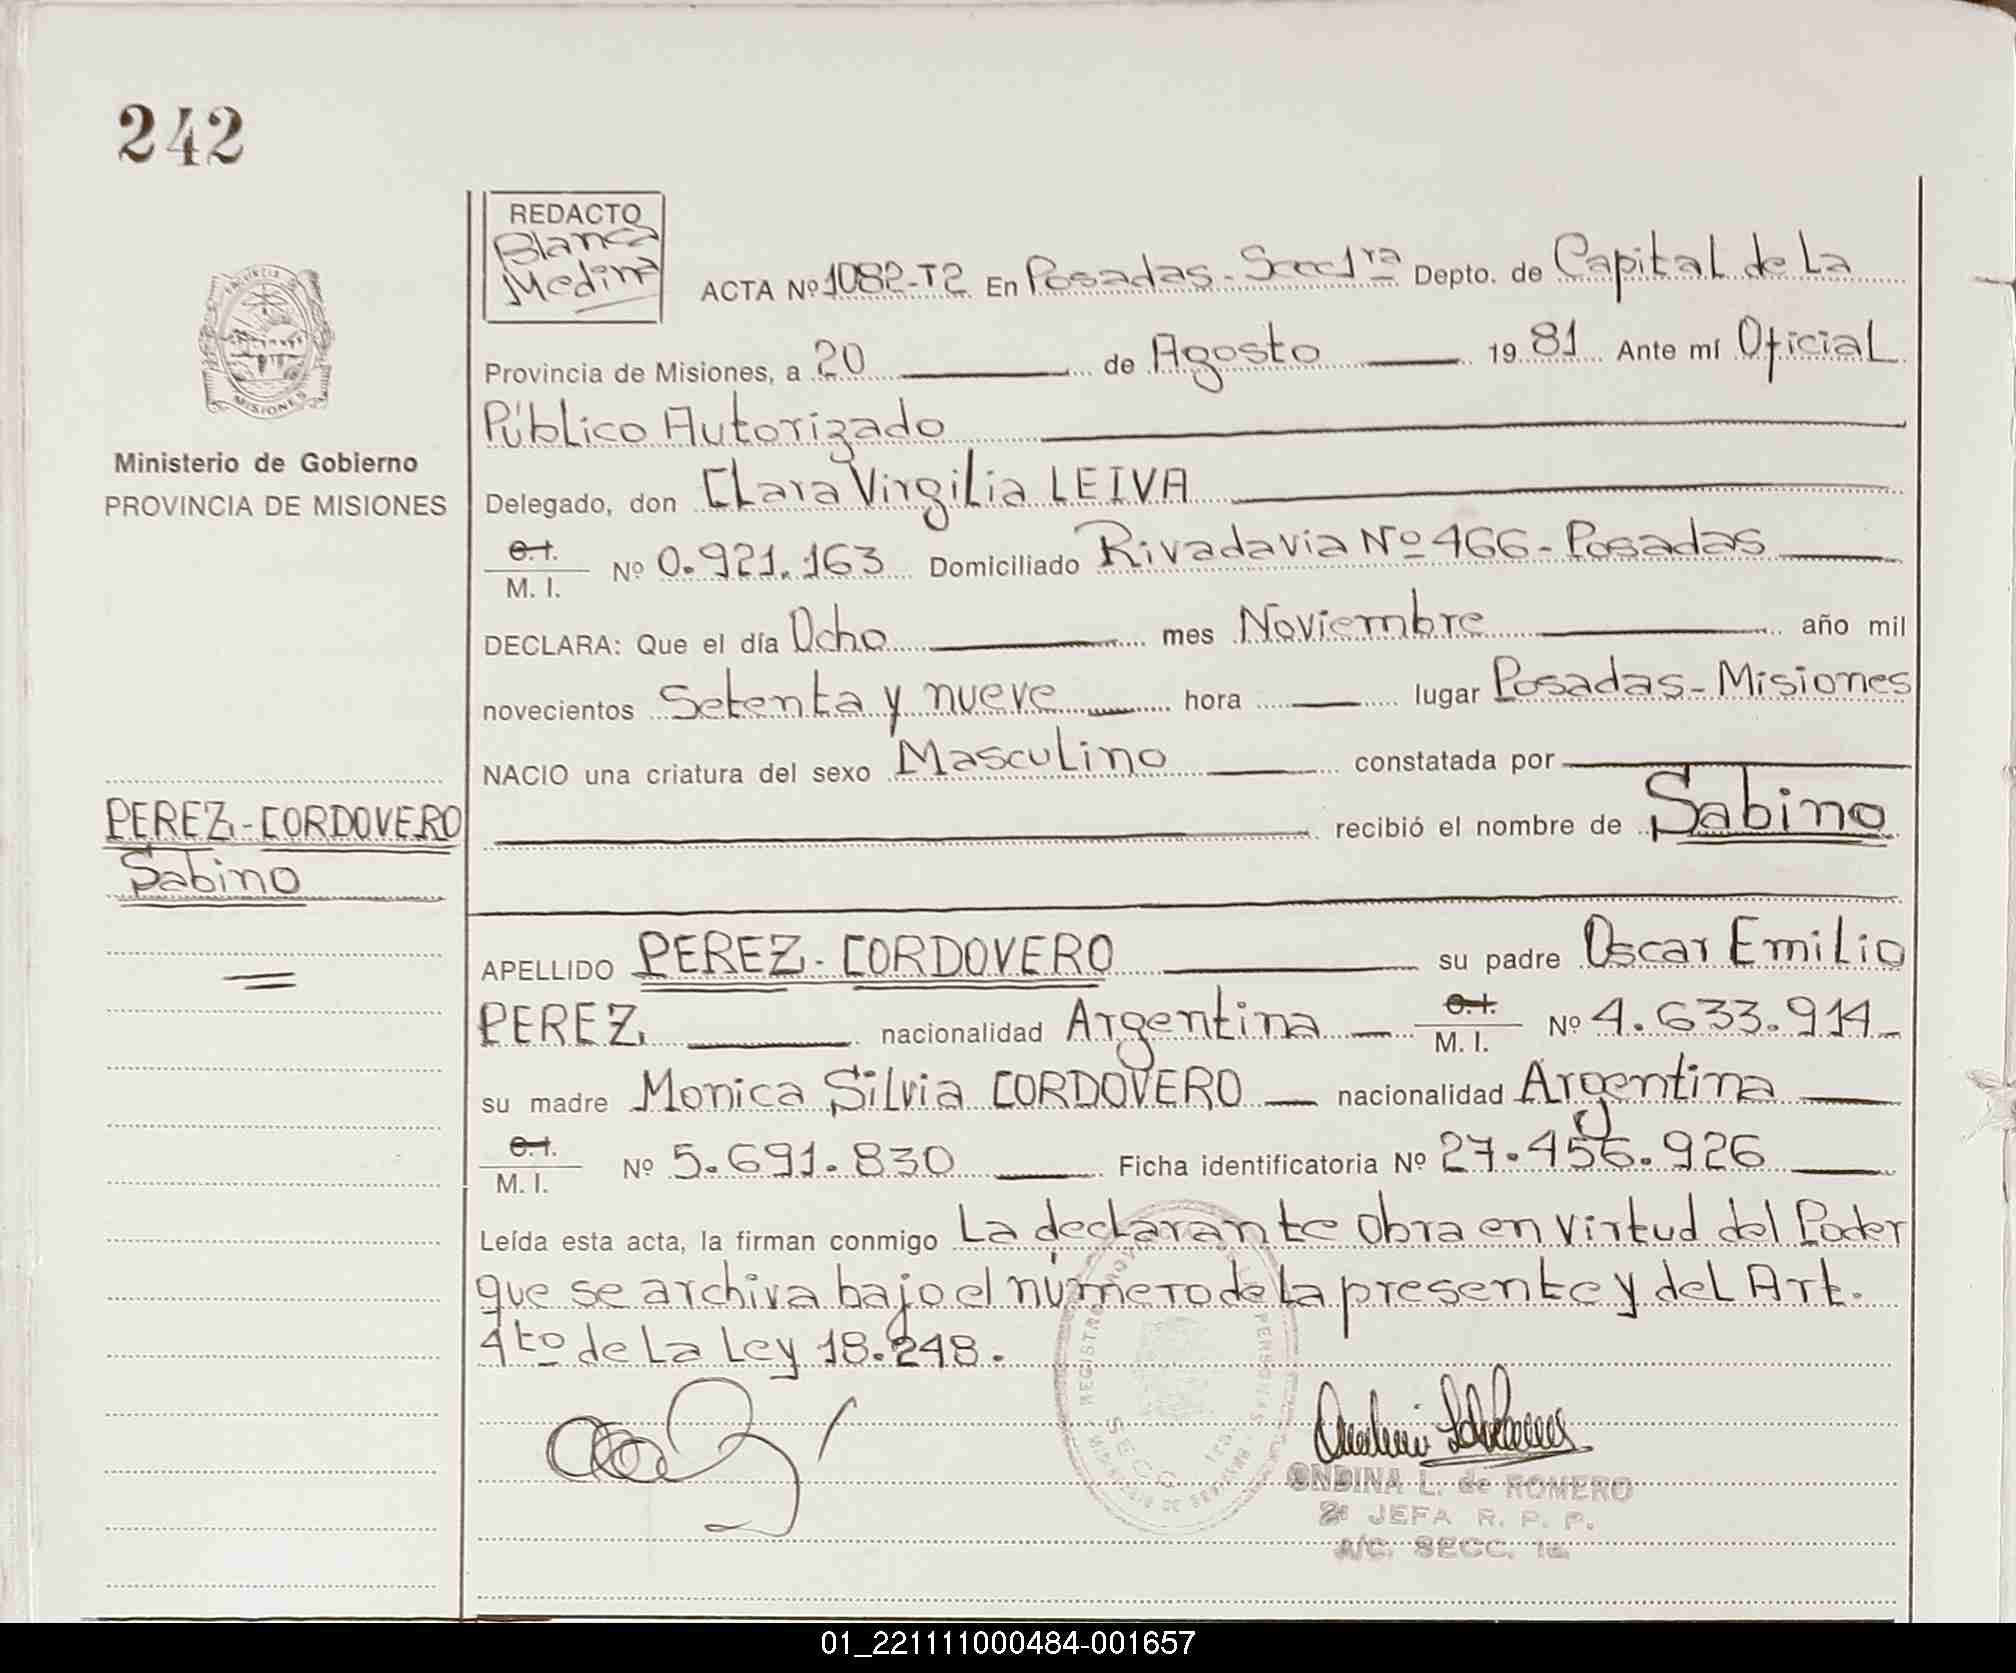 242
REDACTO
Blanca
Medina
ACTA Nº 1082-T2 En Posadas - Secc 1ra Depto. de Capital de La
Provincia de Misiones, a 20 de Agosto 1981 Ante mí Oficial
Público Autorizado
Ministerio de Gobierno
PROVINCIA DE MISIONES
Delegado, don Clara Virgilia LEIVA
C.I.
M. I. Nº 0.921.163 Domiciliado Rivadavia Nº 466 - Posadas
DECLARA: Que el día Ocho mes Noviembre año mil
novecientos Setenta y nueve hora lugar Posadas - Misiones
NACIO una criatura del sexo Masculino constatada por
recibió el nombre de Sabino
PEREZ - CORDOVERO
Sabino
APELLIDO PEREZ - CORDOVERO su padre Oscar Emilio
PEREZ nacionalidad Argentina C.I.
M. I. Nº 4.633.914
su madre Monica Silvia CORDOVERO nacionalidad Argentina
C.I.
M. I. Nº 5.691.830 Ficha identificatoria Nº 27.456.926
Leída esta acta, la firman conmigo La declarante obra en virtud del Poder
que se archiva bajo el número de la presente y del Art.
4to de La Ley 18.248.
MISIONES
ONDINA L. de ROMERO
2ª JEFA R. P. P.
A/C. SECC. 1a.
01_221111000484-001657